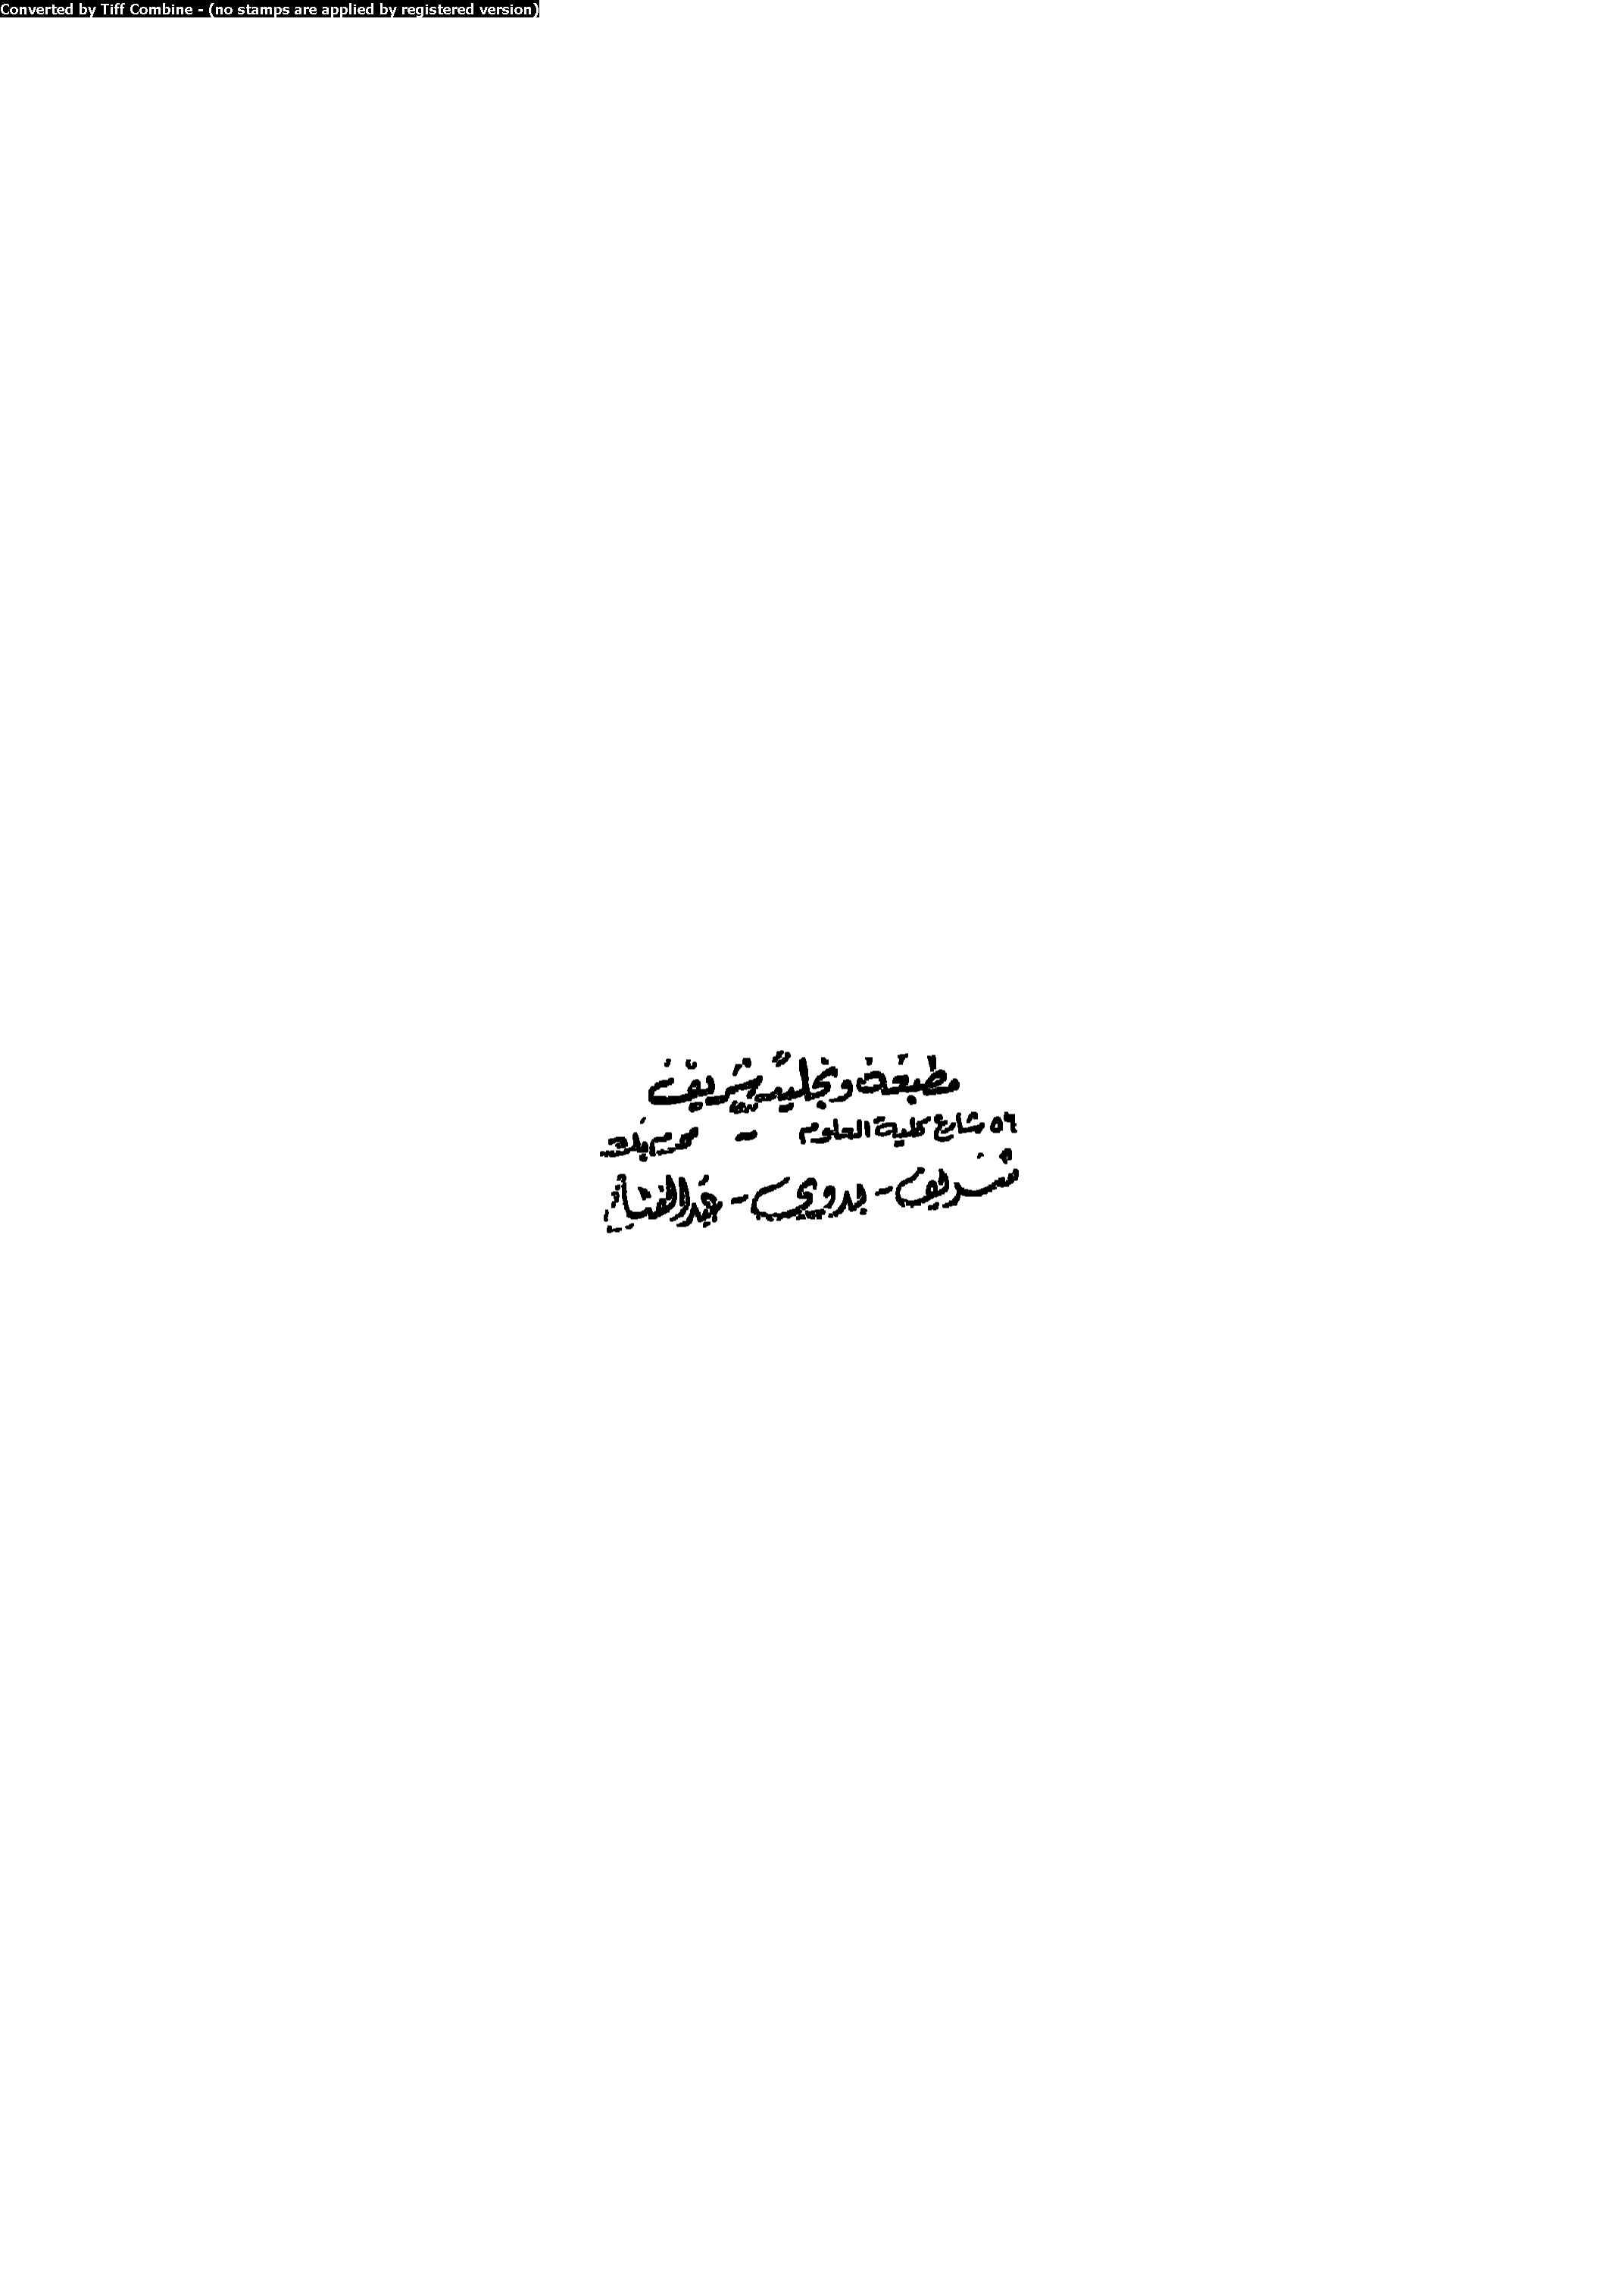 Converted by Tiff Combine - (no stamps are applied by registered version)
مطبعة وتجليد شريف
٥٦ شارع كلية العلوم - محرم بك
شريف - بدوي -